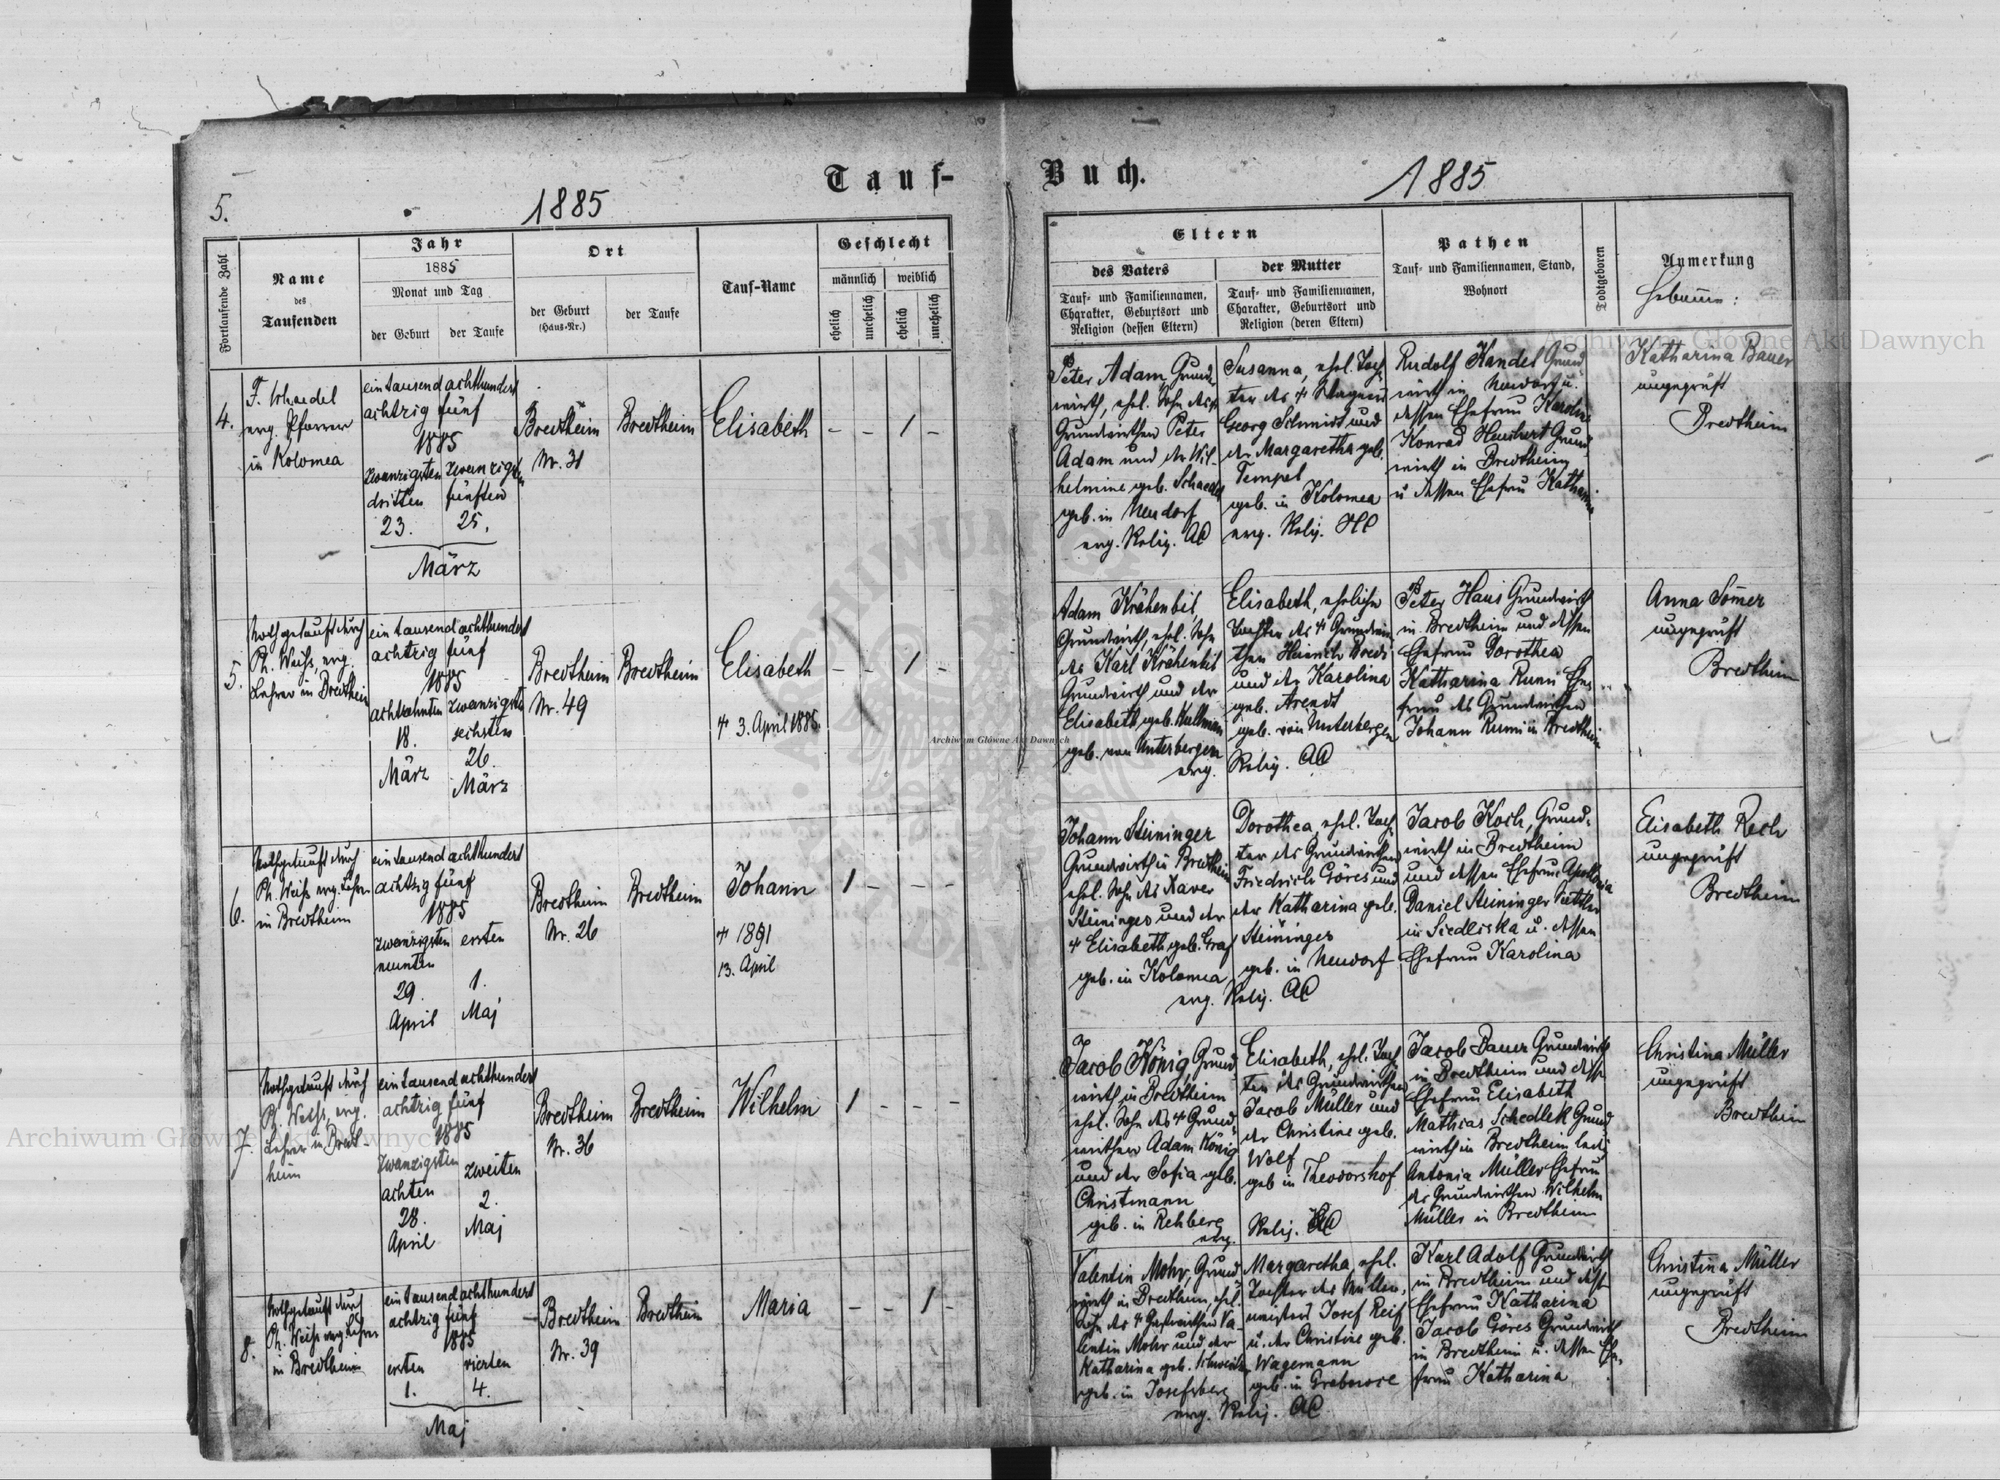 Tauf-
Buch.
5.
1885
1885
Fortlaufende Zahl
Name
des
Taufenden
Jahr
1885
Monat und Tag
der Geburt
der Taufe
Ort
der Geburt
(Haus-Nr.)
der Taufe
Tauf-Name
Geschlecht
männlich
weiblich
ehelich
unehelich
ehelich
unehelich
Eltern
des Vaters
Tauf- und Familiennamen,
Charakter, Geburtsort und
Religion (dessen Eltern)
der Mutter
Tauf- und Familiennamen,
Charakter, Geburtsort und
Religion (deren Eltern)
Pathen
Tauf- und Familiennamen, Stand,
Wohnort
Todtgeboren
Anmerkung
4.
F. Schaedel
evg. Pfarrer
in Kolomea
ein tausend achthundert
achtzig fünf
1885
zwanzigsten
dritten
23.
zwanzigsten
fünften
25.
März
Bredtheim
Nr. 31
Bredtheim
Elisabeth
- - 1 -
Peter Adam Grund-
wirth, ehel. Sohn des
Grundwirthen Peter
Adam und der Wil-
helmine geb. Schaedel
geb. in Neudorf
evg. Relig. AC
Susanna, ehel. Toch-
ter des † Wagners
Georg Schmidt und
der Margaretha geb.
Tempel
geb. in Kolomea
evg. Relig. HC
Rudolf Kandel Grund-
wirth in Neudorf u.
dessen Ehefrau Karoline
Konrad Heuchert Grund-
wirth in Bredtheim
u dessen Ehefrau Katharina
Katharina Bauer
ungeprüft
Bredtheim
5.
Nothgetauft durch
Ph. Weiß, evg.
Lehrer in Bredtheim
ein tausend achthundert
achtzig fünf
1885
achtzehnten
18.
März
zwanzigsten
sechsten
26.
März
Bredtheim
Nr. 49
Bredtheim
Elisabeth
† 3. April 1885
- - 1 -
Adam Krähenbil
Grundwirth, ehel. Sohn
des Karl Krähenbil
Grundwirth und der
Elisabeth geb. Kullman
geb. von Unterbergen
evg.
Elisabeth, eheliche
Tochter des † Grundwir-
then Heinrich Bredt
und der Karolina
geb. Arendt
geb. von Unterbergen
Relig. AC
Peter Haus Grundwirth
in Bredtheim und dessen
Ehefrau Dorothea
Katharina Rumi Ehe-
frau des Grundwirthen
Johann Rumi in Bredtheim
Anna Somer
ungeprüft
Bredtheim
6.
Nothgetauft durch
Ph. Weiß evg. Lehrer
in Bredtheim
ein tausend achthundert
achtzig fünf
1885
zwanzigsten
neunten
29.
April
ersten
1.
Maj
Bredtheim
Nr. 26
Bredtheim
Johann
† 1891
13. April
1 - - -
Johann Steininger
Grundwirth in Bredtheim
ehel. Sohn des Xaver
Steininger und der
† Elisabeth geb. Graf
geb. in Kolomea
evg.
Dorothea, ehel. Toch-
ter des Grundwirthen
Friedrich Göres und
der Katharina geb.
Steininger
geb. in Neudorf
Relig. AC
Jacob Koch, Grund-
wirth in Bredtheim
und dessen Ehefrau Apollonia
Daniel Steininger
in Siedliska u. dessen
Ehefrau Karolina
Elisabeth Rech
ungeprüft
Bredtheim
7.
Nothgetauft durch
Ph. Weiß, evg.
Lehrer in Bredt-
heim
ein tausend achthundert
achtzig fünf
1885
zwanzigsten
achten
28.
April
zweiten
2.
Maj
Bredtheim
Nr. 36
Bredtheim
Wilhelm
1 - - -
Jacob König, Grund-
wirth in Bredtheim
ehel. Sohn des † Grund-
wirthen Adam König
und der Sofia geb.
Christmann
geb. in Rehberg
evg.
Elisabeth, ehel. Toch-
ter des Grundwirthen
Jacob Müller und
der Christine geb.
Wolf
geb in Theodorshof
Relig.
Jacob Bauer Grundwirth
in Bredtheim und dessen
Ehefrau Elisabeth
Mathias Schedlek Grund-
wirth in Bredtheim ledig
Antonia Müller Ehefrau
des Grundwirthen Wilhelm
Müller in Bredtheim
Christina Müller
ungeprüft
Bredtheim
8.
Nothgetauft durch
Ph. Weiß evg. Lehrer
in Bredtheim
ein tausend achthundert
achtzig fünf
1885
ersten
1.
vierten
4.
Maj
Bredtheim
Nr. 39
Bredtheim
Maria
- - 1 -
Valentin Mohr, Grund-
wirth in Bredtheim, ehel.
Sohn des † Gastwirthen Va-
lentin Mohr und der
Katharina geb. Schweitzer
geb. in Josefsberg
evg.
Margaretha, ehel.
Tochter des Müller-
meisters Josef Reif
u. der Christine geb.
Wagemann
geb. in
Relig. AC
Karl Adolf Grundwirth
in Bredtheim und dessen
Ehefrau Katharina
Jacob Göres Grundwirth
in Bredtheim u. dessen Ehe-
frau Katharina
Christina Müller
ungeprüft
Bredtheim
Archiwum Główne Akt Dawnych
Archiwum Główne Akt Dawnych
Archiwum Główne Akt Dawnych